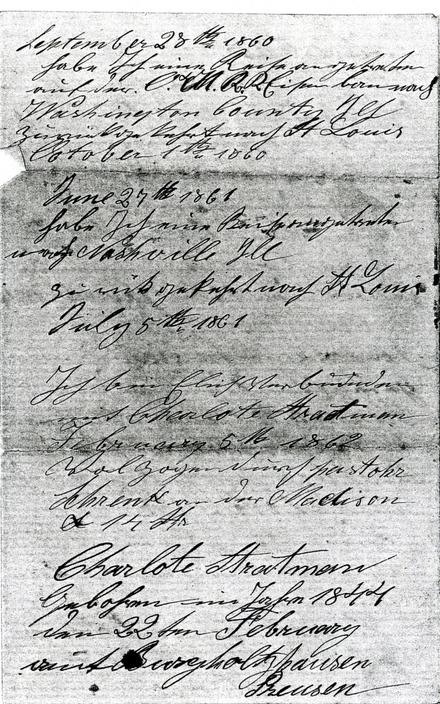 September 28th 1860
habe Ich eine Reise angetreten
auf der O. & M. R.R. Eisenban nach
Washington County Ill
zurückgekehrt nach St Louis
October 1th 1860
June 27th 1861
habe Ich eine Reise angetreten
nach Nashville Ill
zurükgekehrt nach St Louis
July 5th 1861
Ich bin Ehlich Verbunden
mit Charlote Stratman
February 5th 1862
Volzogen durch pastohr
an der Madison
& 14 Str
Charlote Stratman
Gebohren im Jahr 1844
den 22ten February
amt Burgholtzhausen
Preusen